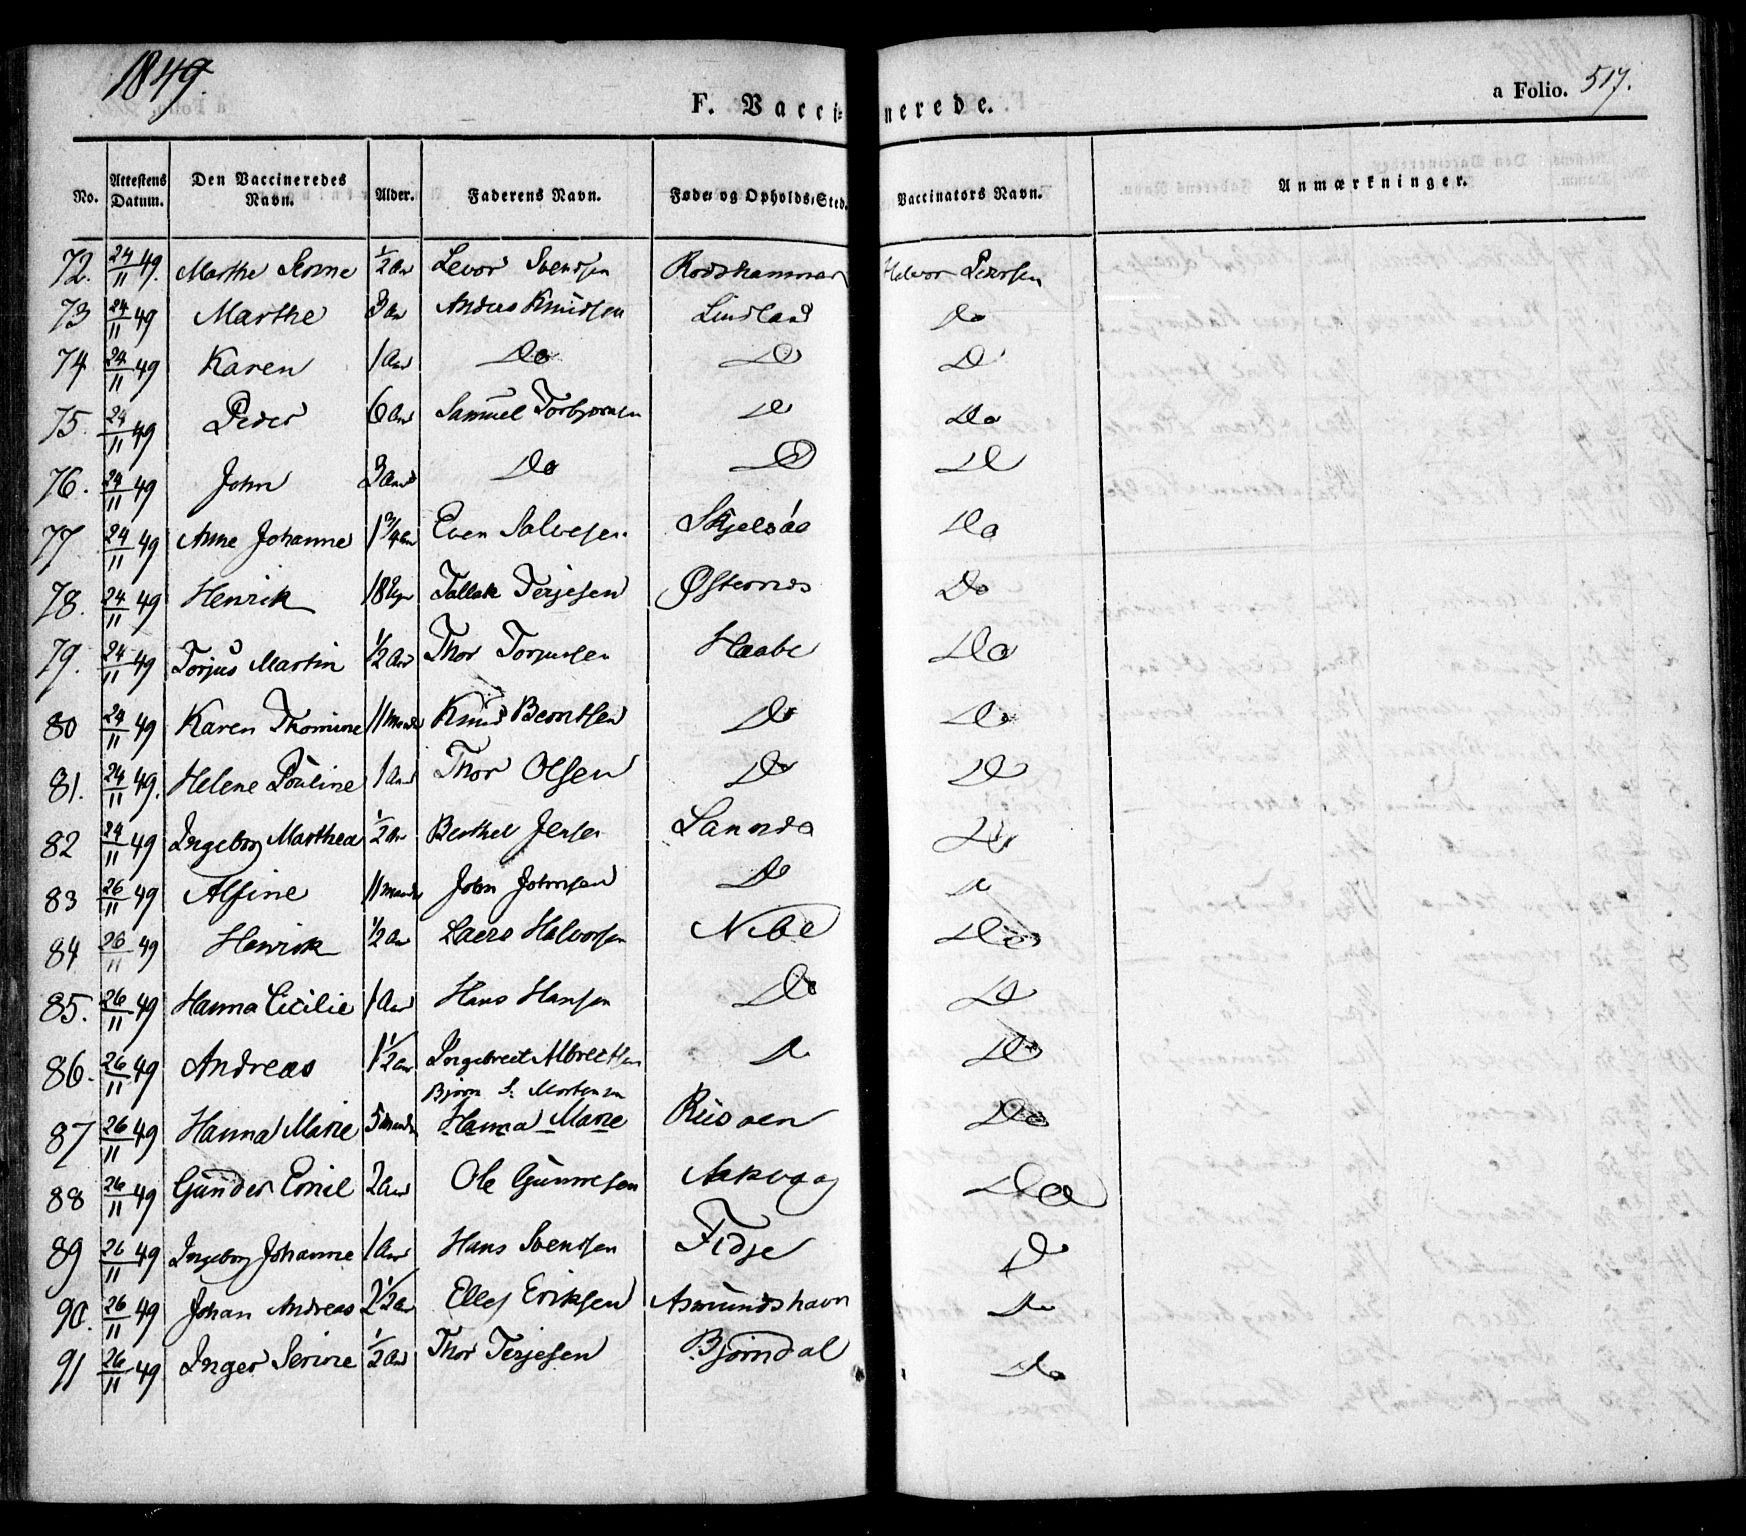 1849.
F. Vaccinerede.
a Folio. 517.
No. Attestens Datum. Den Vaccineredes Navn. Alder. Faderens Navn. Føde- og Opholds-Sted. Vaccinators Navn. Anmærkninger.
72. 24/11 49. Marthe Serine 1/2 Aar Levor Svendsen Rødshammer Halvor Pedersen
73 24/11 49 Marthe 3 Aar Anders Knudsen Lindland Do
74 24/11 49 Karen 1 Aar Do Do Do
75. 24/11 49 Peder 6 Aar Samuel Torbjørnsen Do Do
76. 24/11 49 John 3 Aar Do Do Do
77 24/11 49 Anne Johanne 1 3/4 Aar Even Salvesen Skjelsøe Do
78. 24/11 49 Henrik 18 Tallak Terjesen Østernes Do
79. 24/11 49 Torjus Martin 1/2 Aar Thor Torjussen Haabe Do
80 24/11 49 Karen Thomine 11 Maaneder Knud Berntsen Do Do
81. 24/11 49. Helene Pouline 1 Aar Thor Olsen Do Do
82 24/11 49 Ingeborg Marthea 1/2 Aar Berthel Jensen Sannes Do
83 26/11 49 Alfine 11 Maaneder John Johnsen Do Do
84 26/11 49 Henrik 1/2 Aar Laers Halvorsen Nibe Do
85. 26/11 49 Hanna Cicilie 1 Aar Hans Hansen Do Do
86. 26/11 49 Andreas 1 1/2 Aar Ingebret Albretsen Do Do
Bjørn S. Mortensen
87 26/11 49 Hanna Marie 5 Maaneder Hanna Marie Risøen Do
88 26/11 49 Gunder Emil 2 Aar Ole Gunnersen Aakvaag Do
89 26/11 49 Ingeborg Johanne 1 Aar Hans Svendsen Fidje Do
90. 26/11 49 Johan Andreas 2 1/2 Aar Ellef Eriksen Asmundshavn Do
91 26/11 49 Inger Serine 1/2 Aar Thor Terjesen Bjørndal Do